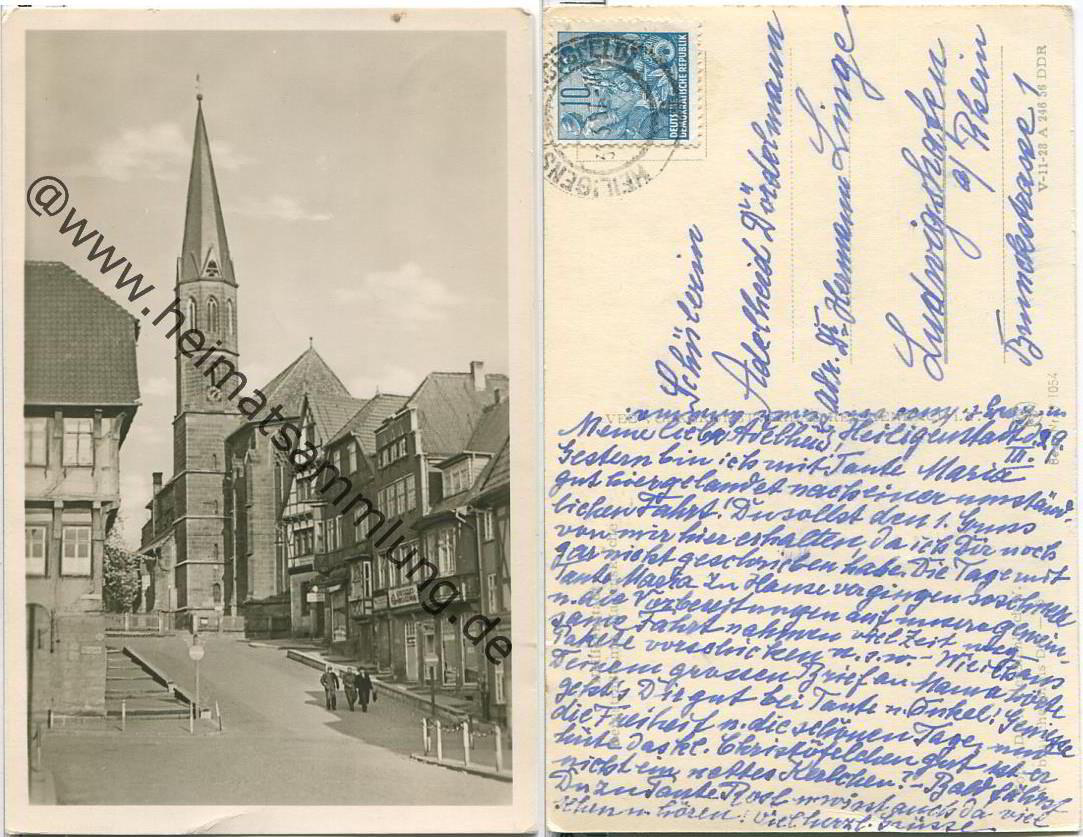 @www.heimatsammlung.de
HEILIGENSTADT
10
DEUTSCHE
DEMOKRATISCHE REPUBLIK
Schülerin
Adelheid Dördelmann
adr. Dr. Hermann Linge
Ludwigshafen
a/Rhein
Brunckstrasse 1
V-11-28 A 246 56 DDR
Meine liebe Adelheid, Heiligenstadt d. 29.
III.
Gestern bin ich mit Tante Maria
gut hier gelandet nach einer umständ-
lichen Fahrt. Du sollst den 1. Gruss
von mir hier erhalten, da ich Dir noch
gar nicht geschrieben habe. Die Tage mit
Tante Maria zu Hause vergingen so schnell
u. die Vorbereitungen auf unsere gemein-
same Fahrt nahmen viel Zeit weg,
Pakete vorschicken u.s.w. – Wie ich aus
Deinem grossen Brief an Mama hörte
geht's Dir gut bei Tante u. Onkel! Geniesse
die Freiheit u. die schönen Tage, und
hüte das kl. Christöfelchen gut, ist er
nicht ein nettes Kerlchen? – Bald fährst
Du zu Tante Rosl u. wirst auch da viel
sehen u. hören! Viel herzl. Grüsse